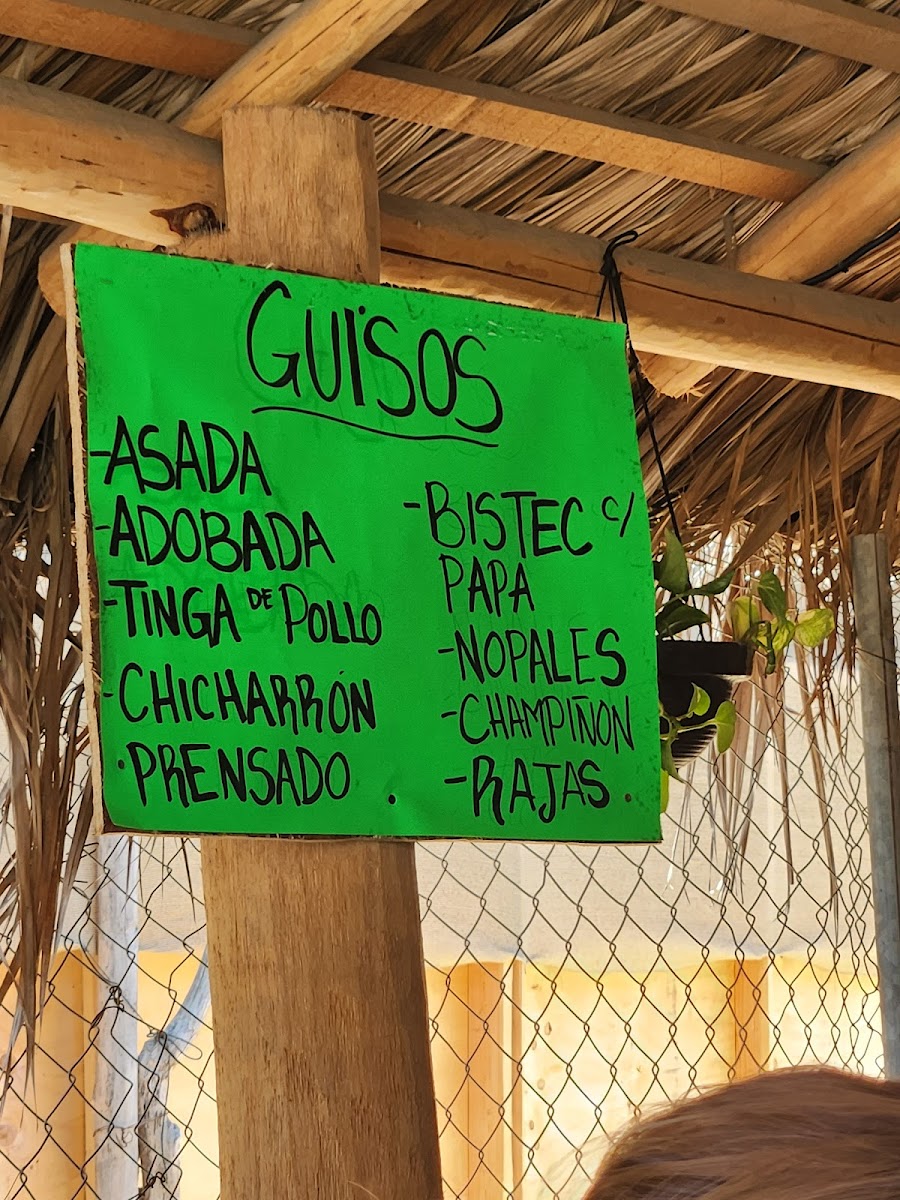 GUISOS
-ASADA
-ADOBADA
-TINGA DE POLLO
-CHICHARRÓN
·PRENSADO
-BISTEC C/
PAPA
-NOPALES
-CHAMPIÑON
-RAJAS